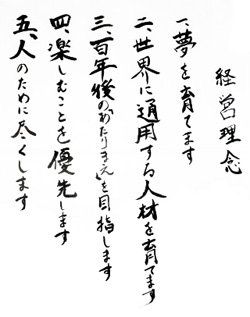 経営理念
一、夢を育てます
二、世界に通用する人材を育てます
三、百年後の「あたりまえ」を目指します
四、楽しむことを優先します
五、人のために尽くします